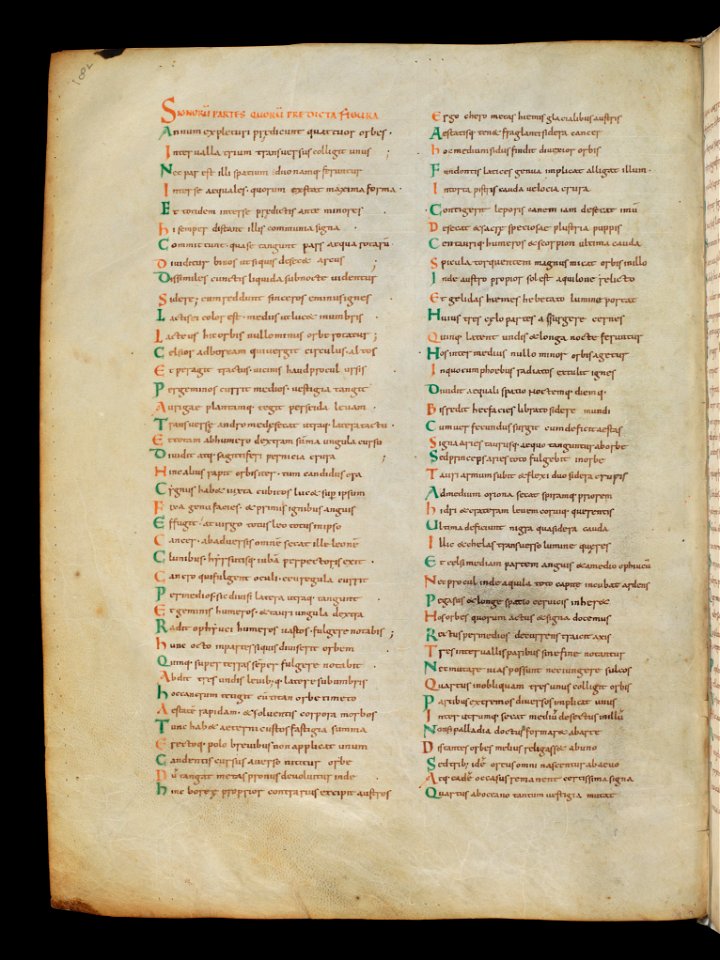 SIGNORŪ PARTES QUORŪ PREDICTA FIGURA
Annum expleturi prędicunt quattuor orbes.
Intervalla trium transversus colligit unus
Nec par est illi spatium duo namq; feruntur
Inter se aequales. quorum exstat maxima forma.
Et totidem inter se prędictis ante minores
hi semper distant illis communia signa
Committunt. quase tangunt pars aequa rotarū
Dividitur binos utsiquis desecæ arcus
Dissimiles cunctis liquida subnocte videntur
Sidere; cum reddunt sinceros eminus ignes
Lactis ei color est. medus utluceæ inumbris
Lacteus hic orbis nullo minus orbe rotatur;
Celsior adboream qui vergit circulus. altos
Et peragit tractus. vicinis haud procul ursis
Per geminos currit medios. vestigia tangit
Aurigae plantamq; tegit perseida levam.
Transversę andromedę secat utraq; latera tactu.
Et totam abhumero dexeram sūma ungula curso
Dividit atq; sagittiferi pernicia crura
Hinc alius rapit orbis iter. tum candidus ora
Cygnus habæ iuxta cubitos luceæ sup ipsum
Fixa genu facies. & primis ignibus anguis
Effugit. at virgo totus leo totus in ipso
Cancer. ab adversis omnē secat ille leonē
Clunibus. hyrsutisq; iubā per pectoris exit.
Cancro qui fulgent oculi. ceu regula currit
Per medios. sic divisi latera utraq; tangunt
Et geminis humeros. & tauri ungula dextra
Radit ophyuci humeros vastos. fulgere notabis;
hunc octo inpartes siquis diviserit orbem
Quinq; super terras sēper fulgere notabit.
Abdit tres undis levibq; latere subumbris
hoccancrum tetigit cū titan orbe timeto
Aestatē rapidam. & solventis corpora morbos
Tunc habæ aeterni custos fastigia summa
Erectoq; polo brevibus non applicat unum
Candentis cursus averso nititur orbe
Dū tangat metas pronus devolvitur inde
hinc boreę proprior contrarius excipit austros
Ergo chero metas hiemis glacialibus austris
Aestatisq; tenæ fraglanti sidera cancer
hoc medium sidus findit divexior orbis
Fundentis latices genua implicat alligat illum.
Intorta pistris cauda velocia crura
Contigerit leporis canem iam desecat imū
Desecat & sacrę speciosae plustria puppis
Centauriq; humeros & scorpion ultima cauda
Spicula torquentem magnus micat orbis in illo
Inde austro propior sol est aquilone relicto
Et gelidas hiemes hebetato lumine portat
Huius tres cęlo partes assurgere cernes
Quinq; latent undis & longa nocte feruntur
Hos inter medius nullo minor orbis agetur
Inquo cum phoebus radiatos extulit ignes
Dividit aequali spatio noctemq; diemq.
Bis redit hec facies librato sidere mundi
Cum ver fecundū surgit cum deficit aestas
Signa aries taurusq; aequo tanguntur ab orbe
Sed princeps aries toto fulgebit in orbe
Tauri armum subit & flexi duo sidera cruris
Ad medium oriona secat spiramq; priorem
hidri & crateram levem corviq; querentis
Ultima deficiunt nigra quasidera cauda
Illic & chelas transverso lumine quęres
Et celsi mediam partem anguis & amedio ophiucū
Nec procul inde aquila toto capite incubat ardens
Pegasus & longe spatio cervicis inheræ
Hos orbes quorum actus & signa docemus
Rectus per medios decurrens traicit axis
Tres intervallis paribus sine fine notantur
Nec mutare vias possunt nec iungere sulcos
Quartus in obliquam tres unus colligit orbis
Partibus extremos diversos implicat unus
Inter utrumq; secat mediū desectus in illū
Non palladia doctus formaræ abarte
Distantes orbes melius religassæ abuno
Sed trib; idē ortus omni nascentur abaevo
Atq; cadē occasus remanent certissima signa
Quartus aboceano tantum vestigia mutat